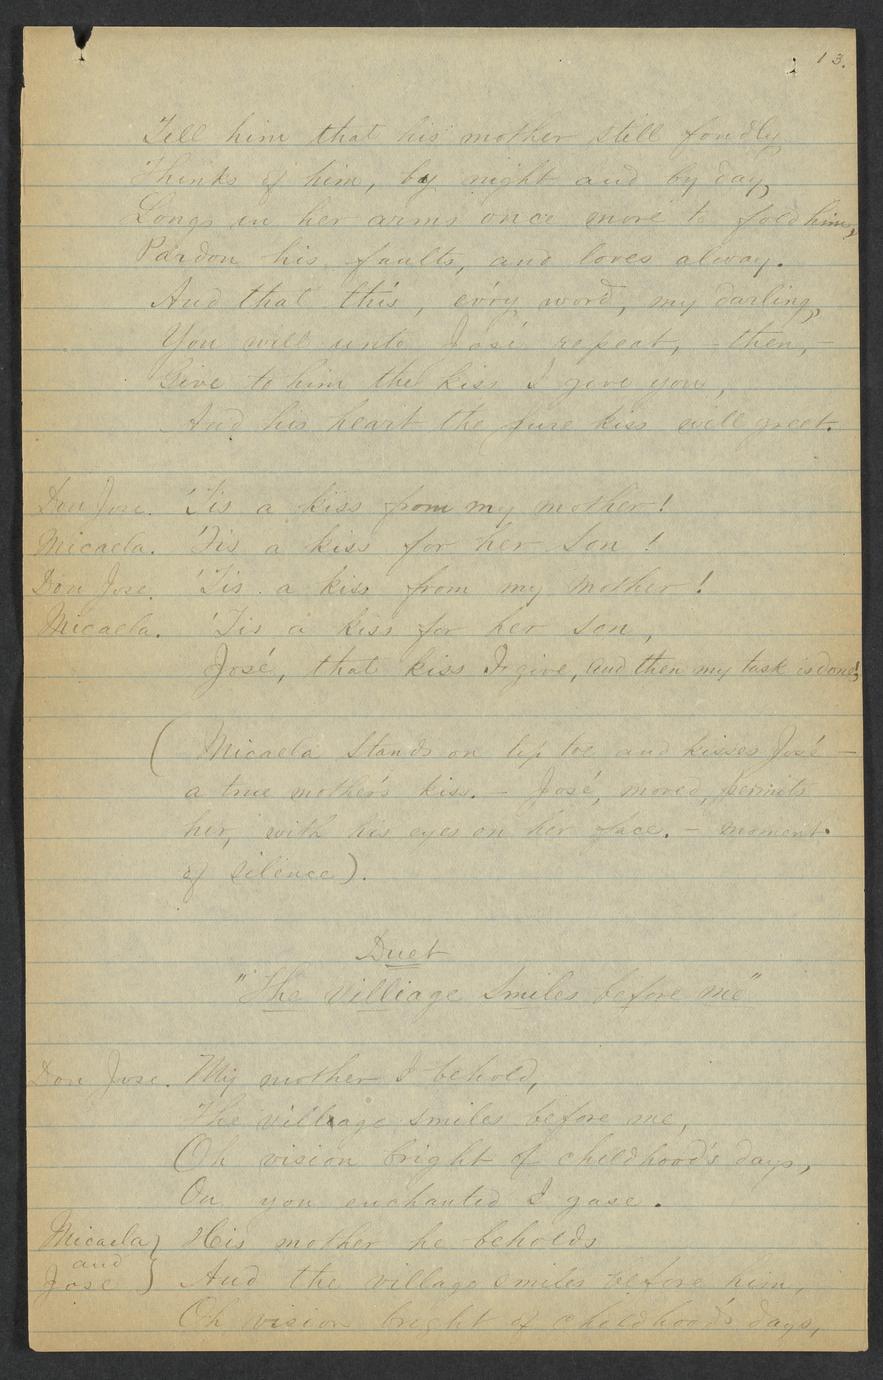 13.
Tell him that his mother still fondly
Thinks of him, by night and by day,
Longs in her arms once more to fold him,
Pardon his faults, and loves alway.
And that this, ev'ry word, my darling,
You will unto José repeat, - then, -
Give to him the kiss I give you,
And his heart the pure kiss will greet.
Don Jose. 'Tis a kiss from my mother!
Micaela. 'Tis a kiss for her son!
Don Jose. 'Tis a kiss from my mother!
Micaela. 'Tis a kiss for her son,
José, that kiss I give, and then my task is done!
( Micaela stands on tip toe and kisses José -
a true mother's kiss. - José, moved, permits
her, with his eyes on her face. - moment
of silence).
Duet
"The villiage smiles before me"
Don Jose. My mother I behold,
The villiage smiles before me,
Oh vision bright of childhood's days,
On you enchanted I gase.
Micaela } His mother he beholds
and
Jose } And the village smiles before him,
Oh vision bright of childhood's days,